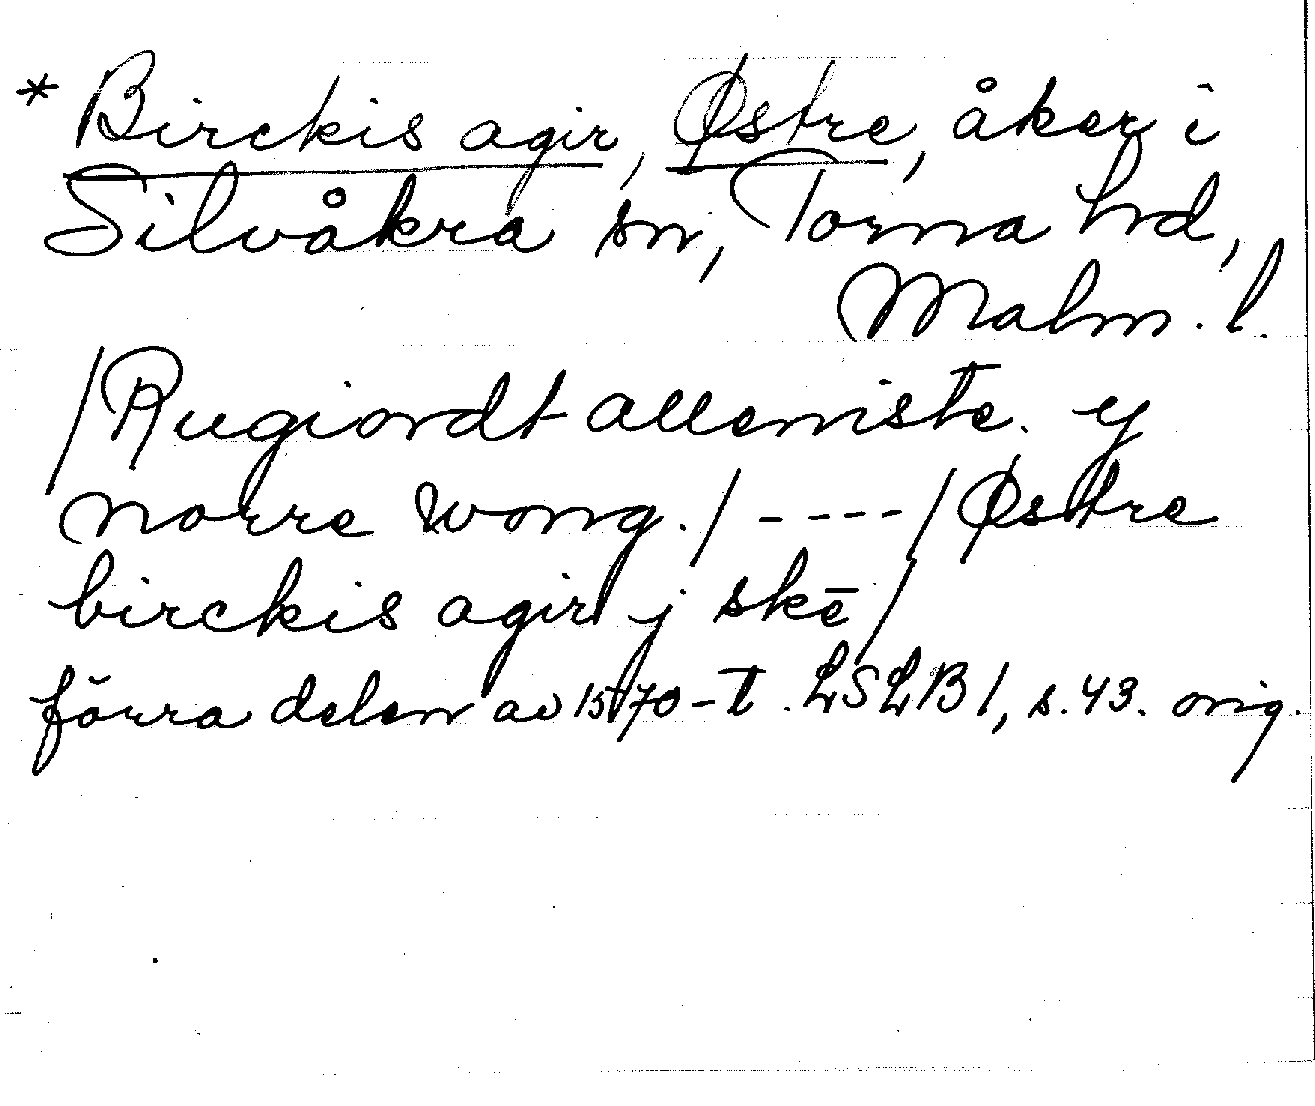 * Birckis agir, Østre, åker i
Silvåkra sn, Torna hd,
Malm. l.
/Rugiordt allemiste. y
norre wong./ - - - - /Østre
birckis agir j skē/
förra delen av 1570-t. LSLB 1, s. 43. orig.